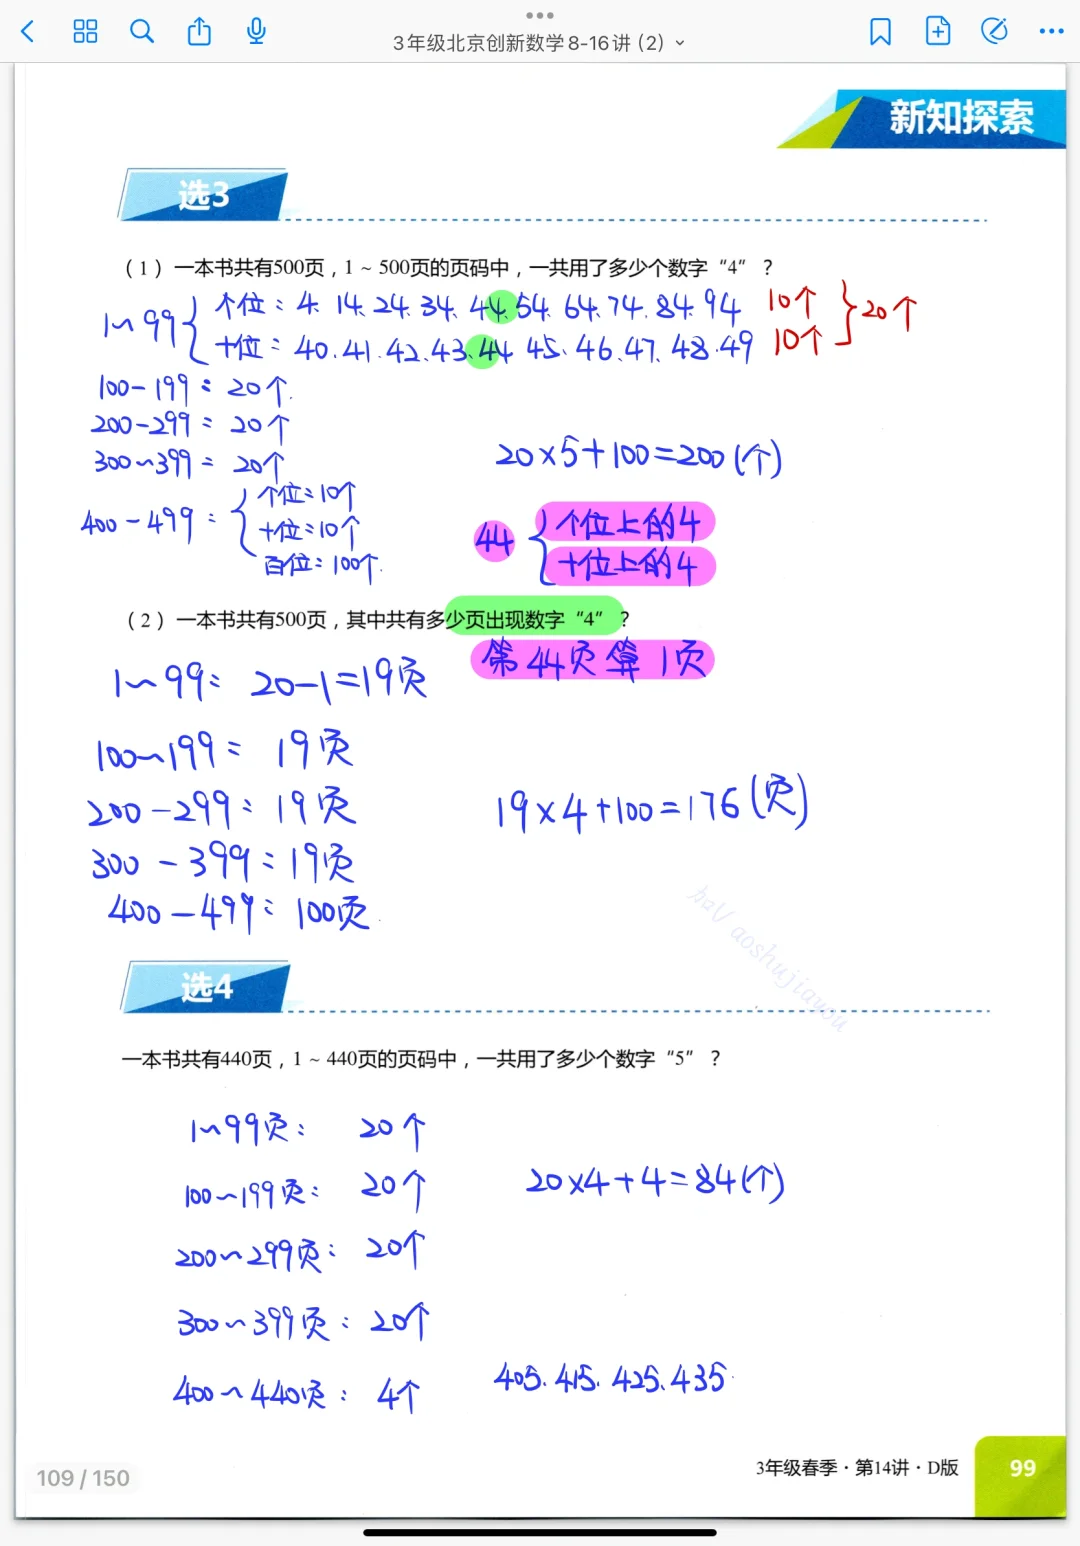 3年级北京创新数学8-16讲 (2)
新知探索
选3
（1）一本书共有500页，1 ~ 500页的页码中，一共用了多少个数字“4”？
1~99 { 个位：4. 14. 24. 34. 44. 54. 64. 74. 84. 94 10个 } 20个
十位：40. 41. 42. 43. 44 45. 46. 47. 48. 49 10个
100-199：20个.
200-299：20个
300~399：20个
20×5+100=200(个)
400-499：{ 个位：10个
十位：10个
百位：100个.
44 { 个位上的4
十位上的4
（2）一本书共有500页，其中共有多少页出现数字“4”？
第44页算1页
1~99：20-1=19页
100~199：19页
200-299：19页
19×4+100=176(页)
300-399：19页
400-499：100页.
haV aoshujiayou
选4
一本书共有440页，1 ~ 440页的页码中，一共用了多少个数字“5”？
1~99页：20个
100~199页：20个
20×4+4=84(个)
200~299页：20个
300~399页：20个
400~440页：4个 405. 415. 425. 435.
3年级春季·第14讲·D版 99
109 / 150